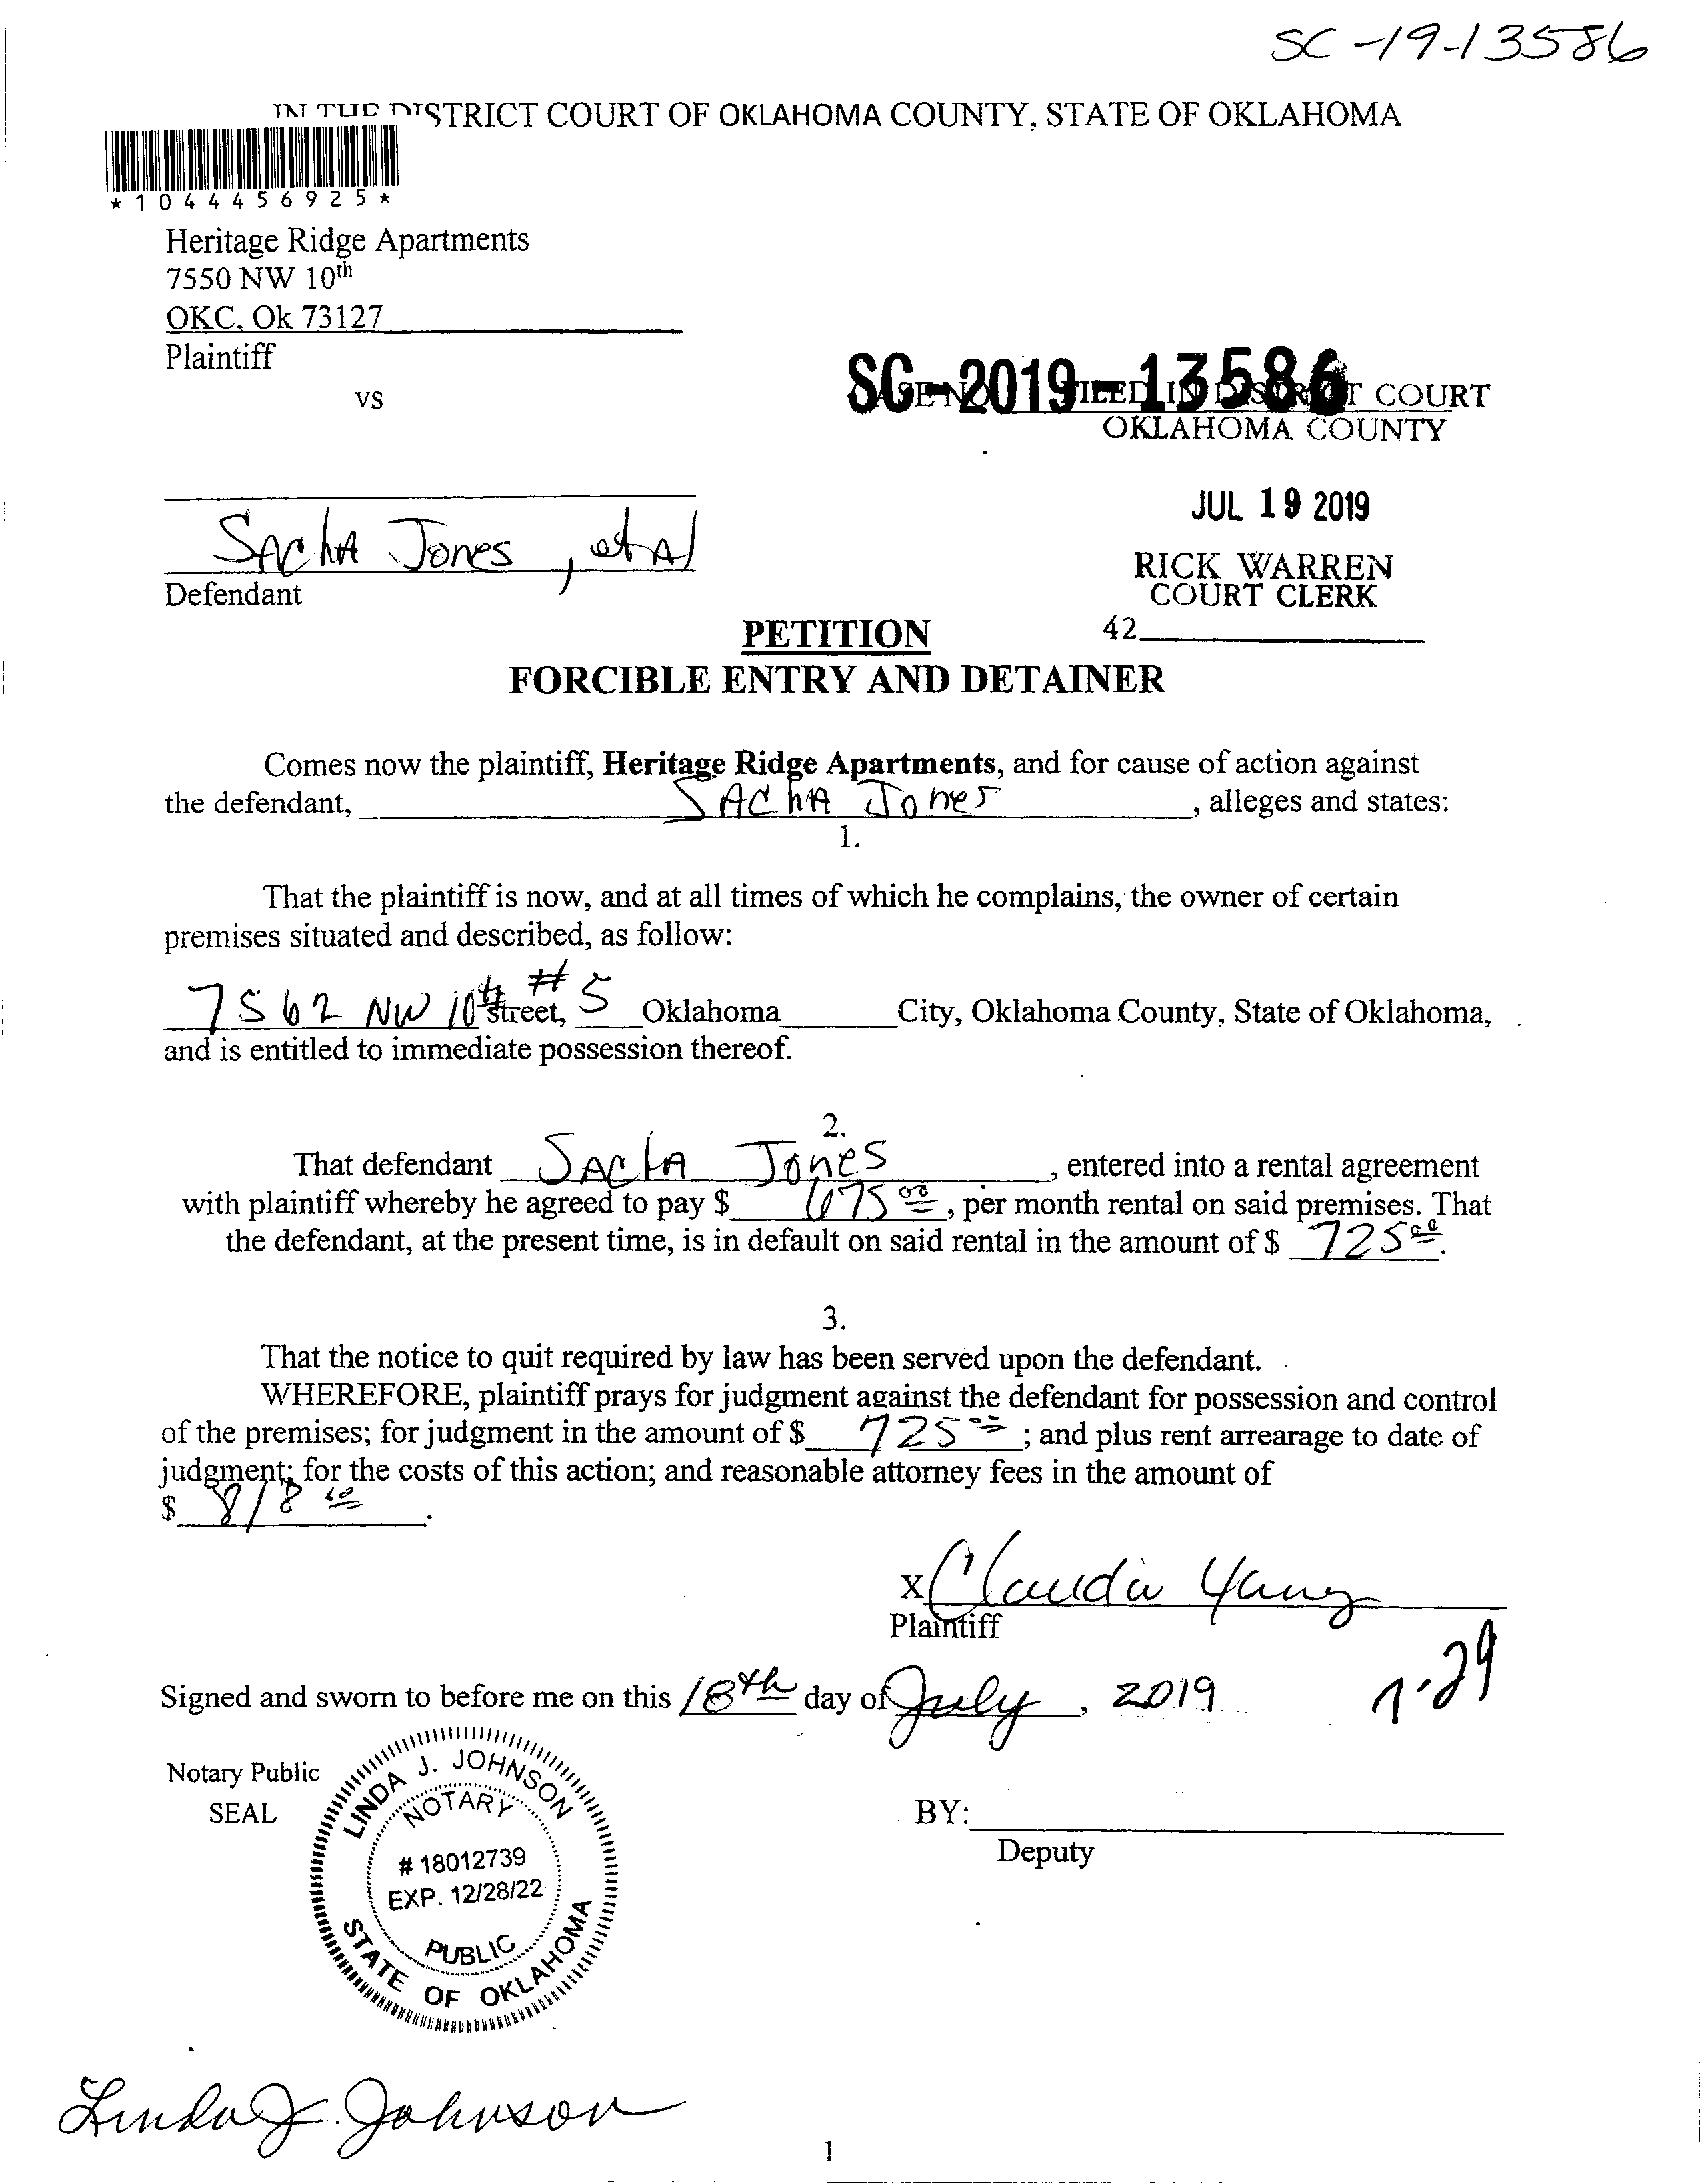 SC-19-13586
IN THE DISTRICT COURT OF OKLAHOMA COUNTY, STATE OF OKLAHOMA
*1044456925*
Heritage Ridge Apartments
7550 NW 10th
OKC, Ok 73127
Plaintiff
vs
SC-2019-13586
FILED IN DISTRICT COURT
OKLAHOMA COUNTY
JUL 19 2019
SAchA Jones, et Al
Defendant
RICK WARREN
COURT CLERK
42
PETITION
FORCIBLE ENTRY AND DETAINER
Comes now the plaintiff, Heritage Ridge Apartments, and for cause of action against
the defendant, SAChA Jones, alleges and states:
1.
That the plaintiff is now, and at all times of which he complains, the owner of certain
premises situated and described, as follow:
7562 NW 10th Street, #5 Oklahoma City, Oklahoma County, State of Oklahoma,
and is entitled to immediate possession thereof.
2.
That defendant SAchA Jones, entered into a rental agreement
with plaintiff whereby he agreed to pay $ 675 00, per month rental on said premises. That
the defendant, at the present time, is in default on said rental in the amount of $ 725 00.
3.
That the notice to quit required by law has been served upon the defendant.
WHEREFORE, plaintiff prays for judgment against the defendant for possession and control
of the premises; for judgment in the amount of $ 725 00; and plus rent arrearage to date of
judgment; for the costs of this action; and reasonable attorney fees in the amount of
$ 818.
x Claudia Yanez
Plaintiff
Signed and sworn to before me on this 18th day of July, 2019
Notary Public
SEAL
LINDA J. JOHNSON
NOTARY
# 18012739
EXP. 12/28/22
PUBLIC
STATE OF OKLAHOMA
BY:
Deputy
Linda J. Johnson
1